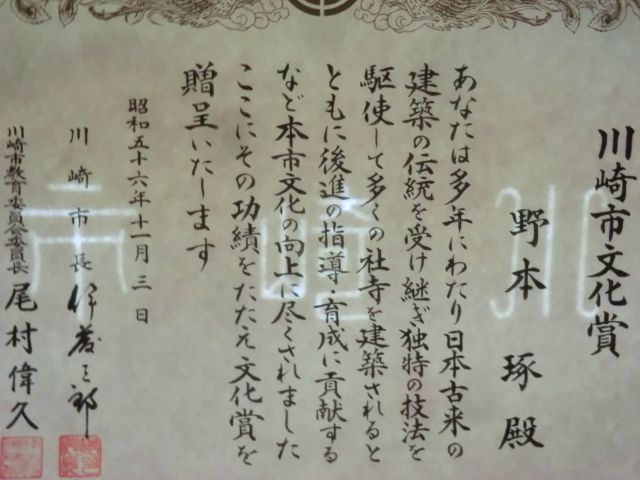 川崎市文化賞
野本琢殿
あなたは多年にわたり日本古来の
建築の伝統を受け継ぎ独特の技法を
駆使して多くの社寺を建築されると
ともに後進の指導育成に貢献する
など本市文化の向上に尽くされました
ここにその功績をたたえ文化賞を
贈呈いたします
昭和五十六年十一月三日
川崎市長 伊藤三郎
川崎市教育委員会委員長 尾村偉久